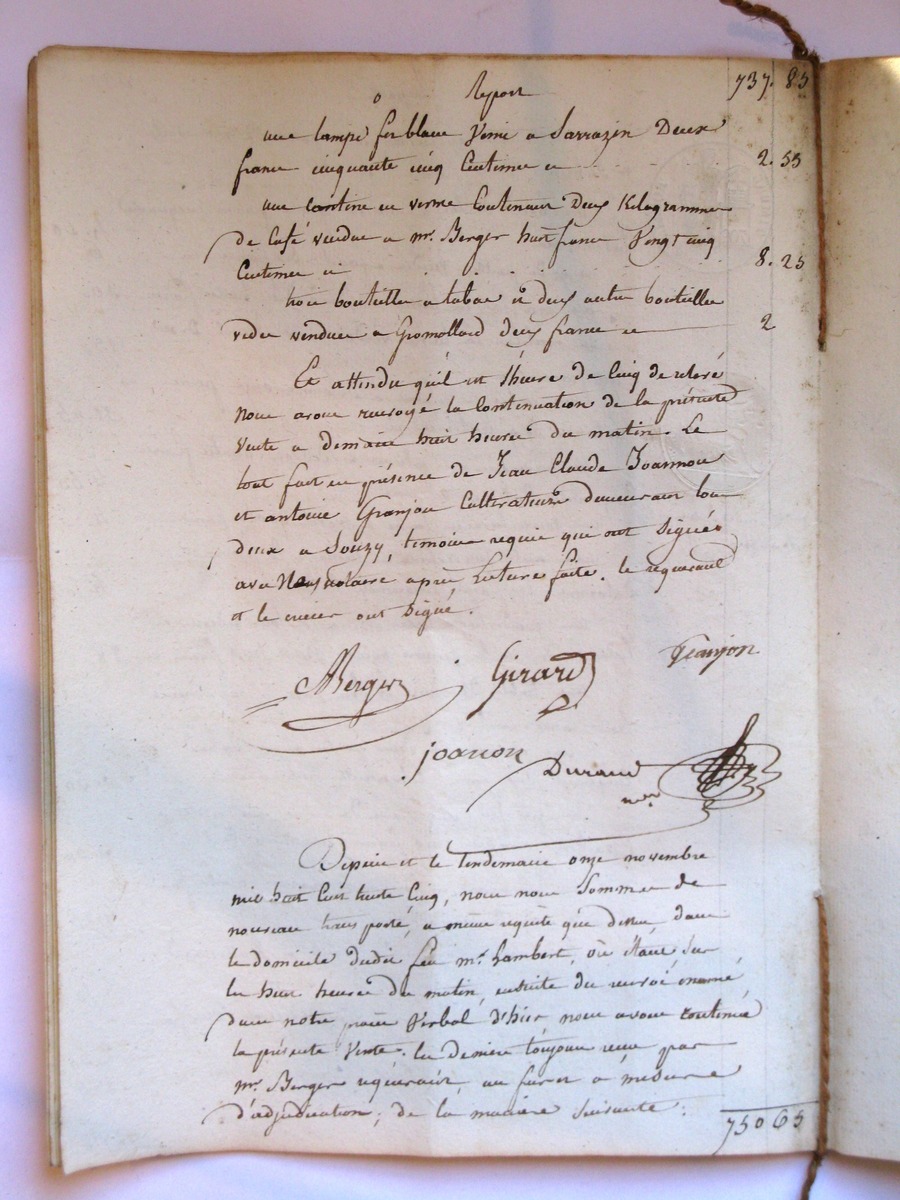 Report 737. 85
une lampe fer blanc Verni a Sarrazin Deux
francs cinquante cinq Centimes ci 2. 55
une cantine en verre Contenant Deux Kilogrammes
de Café vendue a mr. Berger huit francs Vingt cinq
Centimes ci 8. 25
trois bouteilles a tabac & deux autres bouteilles
vides vendues a Gromollard deux francs ci 2
Et attendu qu'il est l'heure de Cinq de relevé
Nous avons renvoyé la Continuation de la présente
Vente a demain huit heures du matin. Le
tout fait en présence de Jean Claude Joannon
et antoine Granjon Cultivateurs demeurant tous
deux a Souzy, temoins requis qui ont Signés
avec Nous notaire après Lecture faite. le requerant
et le crieur ont signé.
Berger Girard Granjon
joanon Durand
nre
Depuis et le lendemain onze novembre
mil huit Cent trente Cinq, nous nous Sommes de
nouveau transporté, a même requête que dessus, dans
le domicile dudit feu mr. Lambert, où étant, sur
les huit heures du matin, ensuite du renvoi énoncé,
dans notre procès Verbal d'hier nous avons continué
la présente Vente. les deniers toujours reçus par
Mr. Berger requérant, au fur et a mesure
d'adjudication; de la manière suivante:
750 65